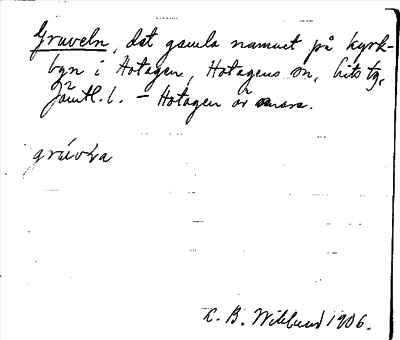 Gruveln, det gamla namnet på kyrk-
byn i Hotagen, Hotagens sn, Lits tg,
Jämtl. l. – Hotagen är
C. B. Wiklund 1906.